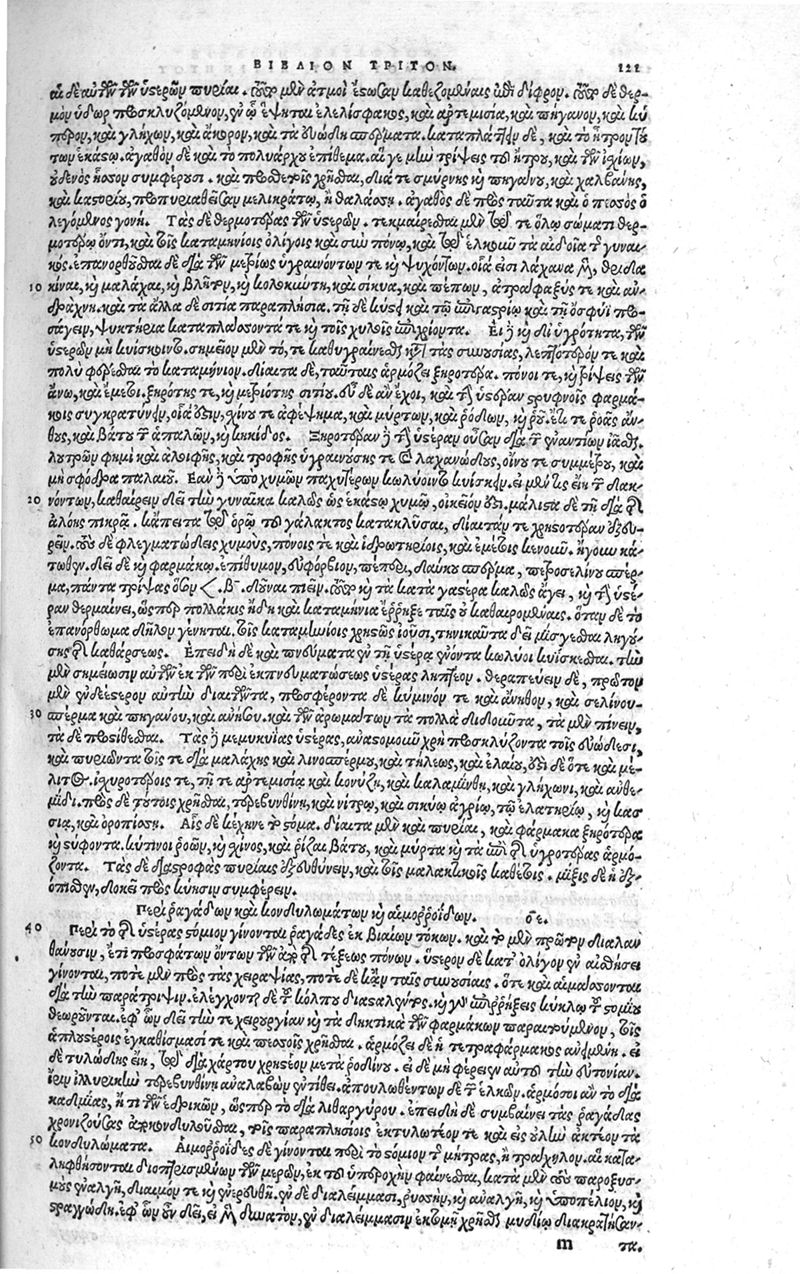 ΒΙΒΛΙΟΝ ΤΡΙΤΟΝ. 121
αἱ δὲ αὐτῶν τῶν ὑστερῶν πυρίαι. τοὺς μὲν ἀτμοὶ ἔστωσαν καθεζομέναις ἐπὶ δίφρου. τοὺς δὲ θερ-
μὸν ὕδωρ προσκλυζόμενον, ἐν ᾧ ἕψηται ἐλελίσφακος, καὶ ἀρτεμισία, καὶ πήγανον, καὶ κύ
περον, καὶ γλήχων, καὶ ἄκορον, καὶ τὰ εὐώδη σπέρματα. καταπλάττειν δὲ, καὶ τὸ ἦτρον τού
των ἑκάστῳ. ἀγαθὸν δὲ καὶ τὸ πολυάρχου ἐπίθεμα. αἵ γε μὴν τρίψεις τοῦ ἤτρου, καὶ τῶν ἰσχίων,
οὐδενὸς ἧσσον συμφέρουσι. καὶ προσθέτοις χρῆσθαι, διά τε σμύρνης καὶ πηγάνου, καὶ χαλβάνης,
καὶ καστορίου, προπυριαθεῖσαν μελικράτῳ, ἢ θαλάσσῃ. ἀγαθὸς δὲ πρὸς ταῦτα καὶ ὁ πεσσὸς ὁ
λεγόμενος γονή. Τὰς δὲ θερμοτέρας τῶν ὑστερῶν. τεκμαίρεσθαι μὲν τῷ τε ὅλῳ σώματι θερ-
μοτέρῳ ὄντι, καὶ τοῖς καταμηνίοις ὀλίγοις καὶ σὺν πόνῳ, καὶ τῷ ἑλκοῦν τὰ αἰδοῖα τῆς γυναι-
κός. ἐπανορθοῦσθαι δὲ διὰ τῶν μετρίως ὑγραινόντων τε καὶ ψυχόντων. οἷά εἰσι λάχανα μὲν, θριδα
10 κίναι, καὶ μαλάχαι, καὶ βλῆτον, καὶ κολοκύντη, καὶ σίκυα, καὶ πέπων, ἀτράφαξύς τε καὶ ἀν-
δράχνη. καὶ τὰ ἄλλα δὲ σιτία παραπλήσια. τῇ δὲ κύστει καὶ τῷ ὑπογαστρίῳ καὶ τῇ ὀσφύϊ προ-
σάγειν, ψυκτήρια καταπλάσσοντά τε καὶ τοῖς χυλοῖς ἐπιχρίοντα. Εἰ δὲ καὶ δι' ὑγρότητα, τῶν
ὑστερῶν μὴ κυΐσκοιντο. σημεῖον μὲν τό, τε καθυγραίνεσθαι κατὰ τὰς συνουσίας, λεπτότερόν τε καὶ
πολὺ φέρεσθαι τὸ καταμήνιον. δίαιτα δὲ, ταύταις ἁρμόζει ξηροτέρα. πόνοι τε, καὶ τρίψεις τῶν
ἄνω, καὶ ἔμετοι. ξηρότης τε, καὶ μετριότης σιτίου. εὖ δὲ ἂν ἔχοι, καὶ τὴν ὑστέραν στρυφνοῖς φαρμά-
κοις συγκρατύνειν, οἷά ἐστιν, σχίνου τε ἀφέψημα, καὶ μύρτων, καὶ ῥόδων, καὶ ῥοῦ. ἔτι τε ῥοᾶς ἄν-
θους, καὶ βάτου τῶν ἁπαλῶν, καὶ κηκίδος. Ξηροτέραν δὲ τὴν ὑστέραν οὖσαν διὰ τῶν ἐναντίων ἰᾶσθαι.
λουτρῶν φημὶ καὶ ἀλοιφῆς, καὶ τροφῆς ὑγραινούσης τε καὶ λαχανώδους, οἴνου τε συμμέτρου, καὶ
μὴ σφόδρα παλαιοῦ. Ἐὰν δὲ ὑπὸ χυμῶν παχυτέρων κωλύοιντο κυΐσκειν. εἰ μέν τις εἴη τῶν δακ-
20 νόντων, καθαίρειν δεῖ τὴν γυναῖκα καλῶς ὡς ἑκάστῳ χυμῷ, οἰκεῖον ἐστι. μάλιστα δὲ τῇ διὰ τῆς
ἀλόης πικρᾷ. κἄπειτα τῷ ὀρῷ τοῦ γάλακτος κατακλύσαι, δίαιτάν τε χρηστοτέραν ἐξευ-
ρεῖν. τοὺς δὲ φλεγματώδεις χυμοὺς, πόνοις τε καὶ ἱδρωτηρίοις, καὶ ἐμέτοις κενοῦν. ἤγουν κά-
τωθεν. δεῖ δὲ καὶ φαρμάκῳ. ἐπίθυμον, εὐφόρβιον, πέπερι, δαύκου σπέρμα, πετροσελίνου σπέρ-
μα, πάντα τρίψας ὅσον 𐅻. β. δοῦναι πιεῖν. τοῦτο καὶ τὰ κατὰ γαστέρα καλῶς ἄγει, καὶ τὴν ὑστέ-
ραν θερμαίνει, ὥσπερ πολλάκις ἤδη καὶ καταμήνια ἔῤῥηξε ταῖς οὐ καθαιρομέναις. ὅταν δὲ τὸ
ἐπανόρθωμα δῆλον γένηται. τοῖς καταμηνίοις χρηστῶς ἰοῦσι, τηνικαῦτα δεῖ μίσγεσθαι ληγού-
σης τῆς καθάρσεως. Ἐπειδὴ δὲ καὶ πνεύματα ἐν τῇ ὑστέρᾳ ἐνόντα κωλύοι κυΐσκεσθαι. τὴν
μὲν σημείωσιν αὐτῶν ἐκ τῶν περὶ ἐκπνευματώσεως ὑστέρας ληπτέον. θεραπεύειν δὲ, πρῶτον
μὲν ἐνδεέστερον αὐτὴν διαιτῶντα, προσφέροντα δὲ κύμινόν τε καὶ ἄνηθον, καὶ σελίνου-
30 σπέρμα καὶ πηγάνου, καὶ ἀνίσου. καὶ τῶν ἀρωμάτων τὰ πολλὰ διδοῦντα, τὰ μὲν πίνειν,
τὰ δὲ προστίθεσθαι. Τὰς δὲ μεμυκυίας ὑστέρας, ἀναστομοῦν χρὴ προσκλύζοντα τοῖς εὐώδεσι,
καὶ πυριῶντα τοῖς τε διὰ μαλάχης καὶ λινοσπέρμου, καὶ τήλεως, καὶ ἐλαίου, ἔστι δὲ ὅτε καὶ μέ-
λιτος. ἰσχυροτέροις τε, τῇ τε ἀρτεμισίᾳ καὶ κονύζῃ, καὶ καλαμίνθῃ, καὶ γλήχωνι, καὶ ἀνθε-
μίδι. πρὸς δὲ τούτοις χρῆσθαι, τερεβινθίνῃ, καὶ νίτρῳ, καὶ σικύῳ ἀγρίῳ, τῷ ἐλατηρίῳ, καὶ κασ-
σίᾳ, καὶ ὀροπίσσῃ. Αἷς δὲ κέχηνε τὸ στόμα. δίαιτα μὲν καὶ πυρίαι, καὶ φάρμακα ξηρότερα
καὶ στύφοντα. κύτινοι ῥοῶν, καὶ σχῖνος, καὶ ῥίζαι βάτου, καὶ μύρτα καὶ τὰ ἐπὶ τῆς ὑγροτέρας ἁρμό-
ζοντα. Τὰς δὲ διαστροφὰς πυρίαις ἐξευθύνειν, καὶ τοῖς μαλακτικοῖς καθέτοις. μίξις δὲ ἡ ἐξ-
όπισθεν, δοκεῖ πρὸς κύησιν συμφέρειν.
Περὶ ῥαγάδων καὶ κονδυλωμάτων καὶ αἱμοῤῥοΐδων. οε.
40 Περὶ τὸ τῆς ὑστέρας στόμιον γίνονται ῥαγάδες ἐκ βιαίων τόκων. καὶ τὸ μὲν πρῶτον διαλαν
θάνουσιν, ἔτι προσφάτων ὄντων τῶν ἀπὸ τῆς τέξεως πόνων. ὕστερον δὲ κατ' ὀλίγον ἐν αἰσθήσει
γίνονται, ποτὲ μὲν πρὸς τὰς χειραψίας, ποτὲ δὲ κἀν ταῖς συνουσίαις. ὅτε καὶ αἱμάσσονται
διὰ τὴν παράτριψιν. ἐλέγχονται δὲ τοῦ κόλπου διασταλέντος. καὶ γὰρ ἐπιῤῥήξεις κύκλῳ τοῦ στομίου
θεωροῦνται. ἐφ' ὧν δεῖ τήν τε χειρουργίαν καὶ τὰ δηκτικὰ τῶν φαρμάκων παραιτούμενον, τοῖς
ἁπλουστέροις ἐγκαθίσμασί τε καὶ πεσσοῖς χρῆσθαι. ἁρμόζει δὲ ἡ τετραφάρμακος ἀνειμένη. εἰ
δὲ τυλώδης εἴη, τῷ διὰ χάρτου χρηστέον μετὰ ῥοδίνου. εἰ δὲ μὴ φέρειεν αὐτοῦ τὴν εὐτονίαν.
ἶριν ἰλλυρικὴν τερεβινθίνῃ ἀναλαβὼν ἐντίθει. ἀπουλωθέντων δὲ τῶν ἑλκῶν. ἁρμόσοι ἂν τὸ διὰ
καδμίας, ἤ τι τῶν ἑδρικῶν, ὥσπερ τὸ διὰ λιθαργύρου. ἐπειδὴ δὲ συμβαίνει τὰς ῥαγάδας
χρονιζούσας ἀποκονδυλοῦσθαι, τοῖς παραπλησίοις ἐκτυλωτέον τε καὶ εἰς οὐλὴν ἀκτέον τὰ
50 κονδυλώματα. Αἱμοῤῥοΐδες δὲ γίνονται περὶ τὸ στόμιον τῆς μήτρας, ἢ τράχηλον. αἳ κατα-
ληφθήσονται διοπτριζομένων τῶν μερῶν, ἐκ τοῦ ὑπεροχὴν φαίνεσθαι, κατὰ μὲν τοὺς παροξυσ-
μοὺς ἐναλγῆ, δίαιμόν τε καὶ ἐνερευθῆ. ἐν δὲ διαλείμμασι, ῥυσσὴν, καὶ ἀναλγῆ, καὶ ὑποπέλιον, καὶ
στραγγώδη. ἐφ' ὧν οὖν δεῖ, εἰ μὲν δυνατὸν, ἐν διαλείμμασιν ἐκτομῇ χρῆσθαι μυδίῳ διακρατήσαν-
m τα.